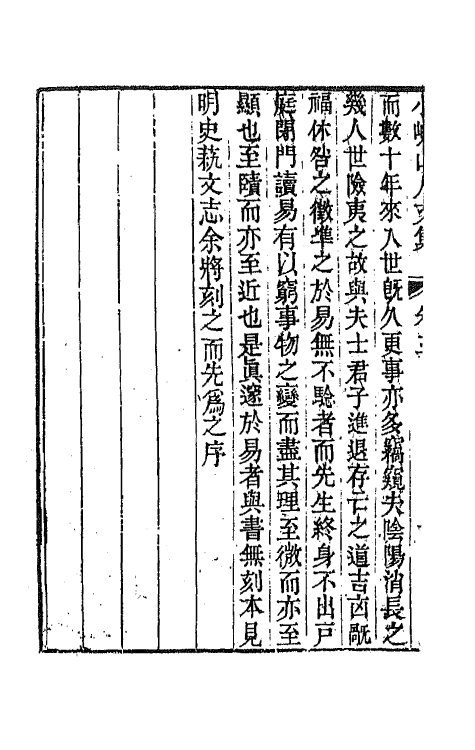 而數十年來入世旣久更事亦多竊窺夫陰陽消長之
幾人世險夷之故與夫士君子進退存亡之道吉凶
福休咎之徵準之於易無不驗者而先生終身不出戸
庭閉門讀易有以窮事物之變而盡其理至微而亦至
顯也至賾而亦至近也是眞邃於易者與書無刻本見
明史蓺文志余將刻之而先爲之序